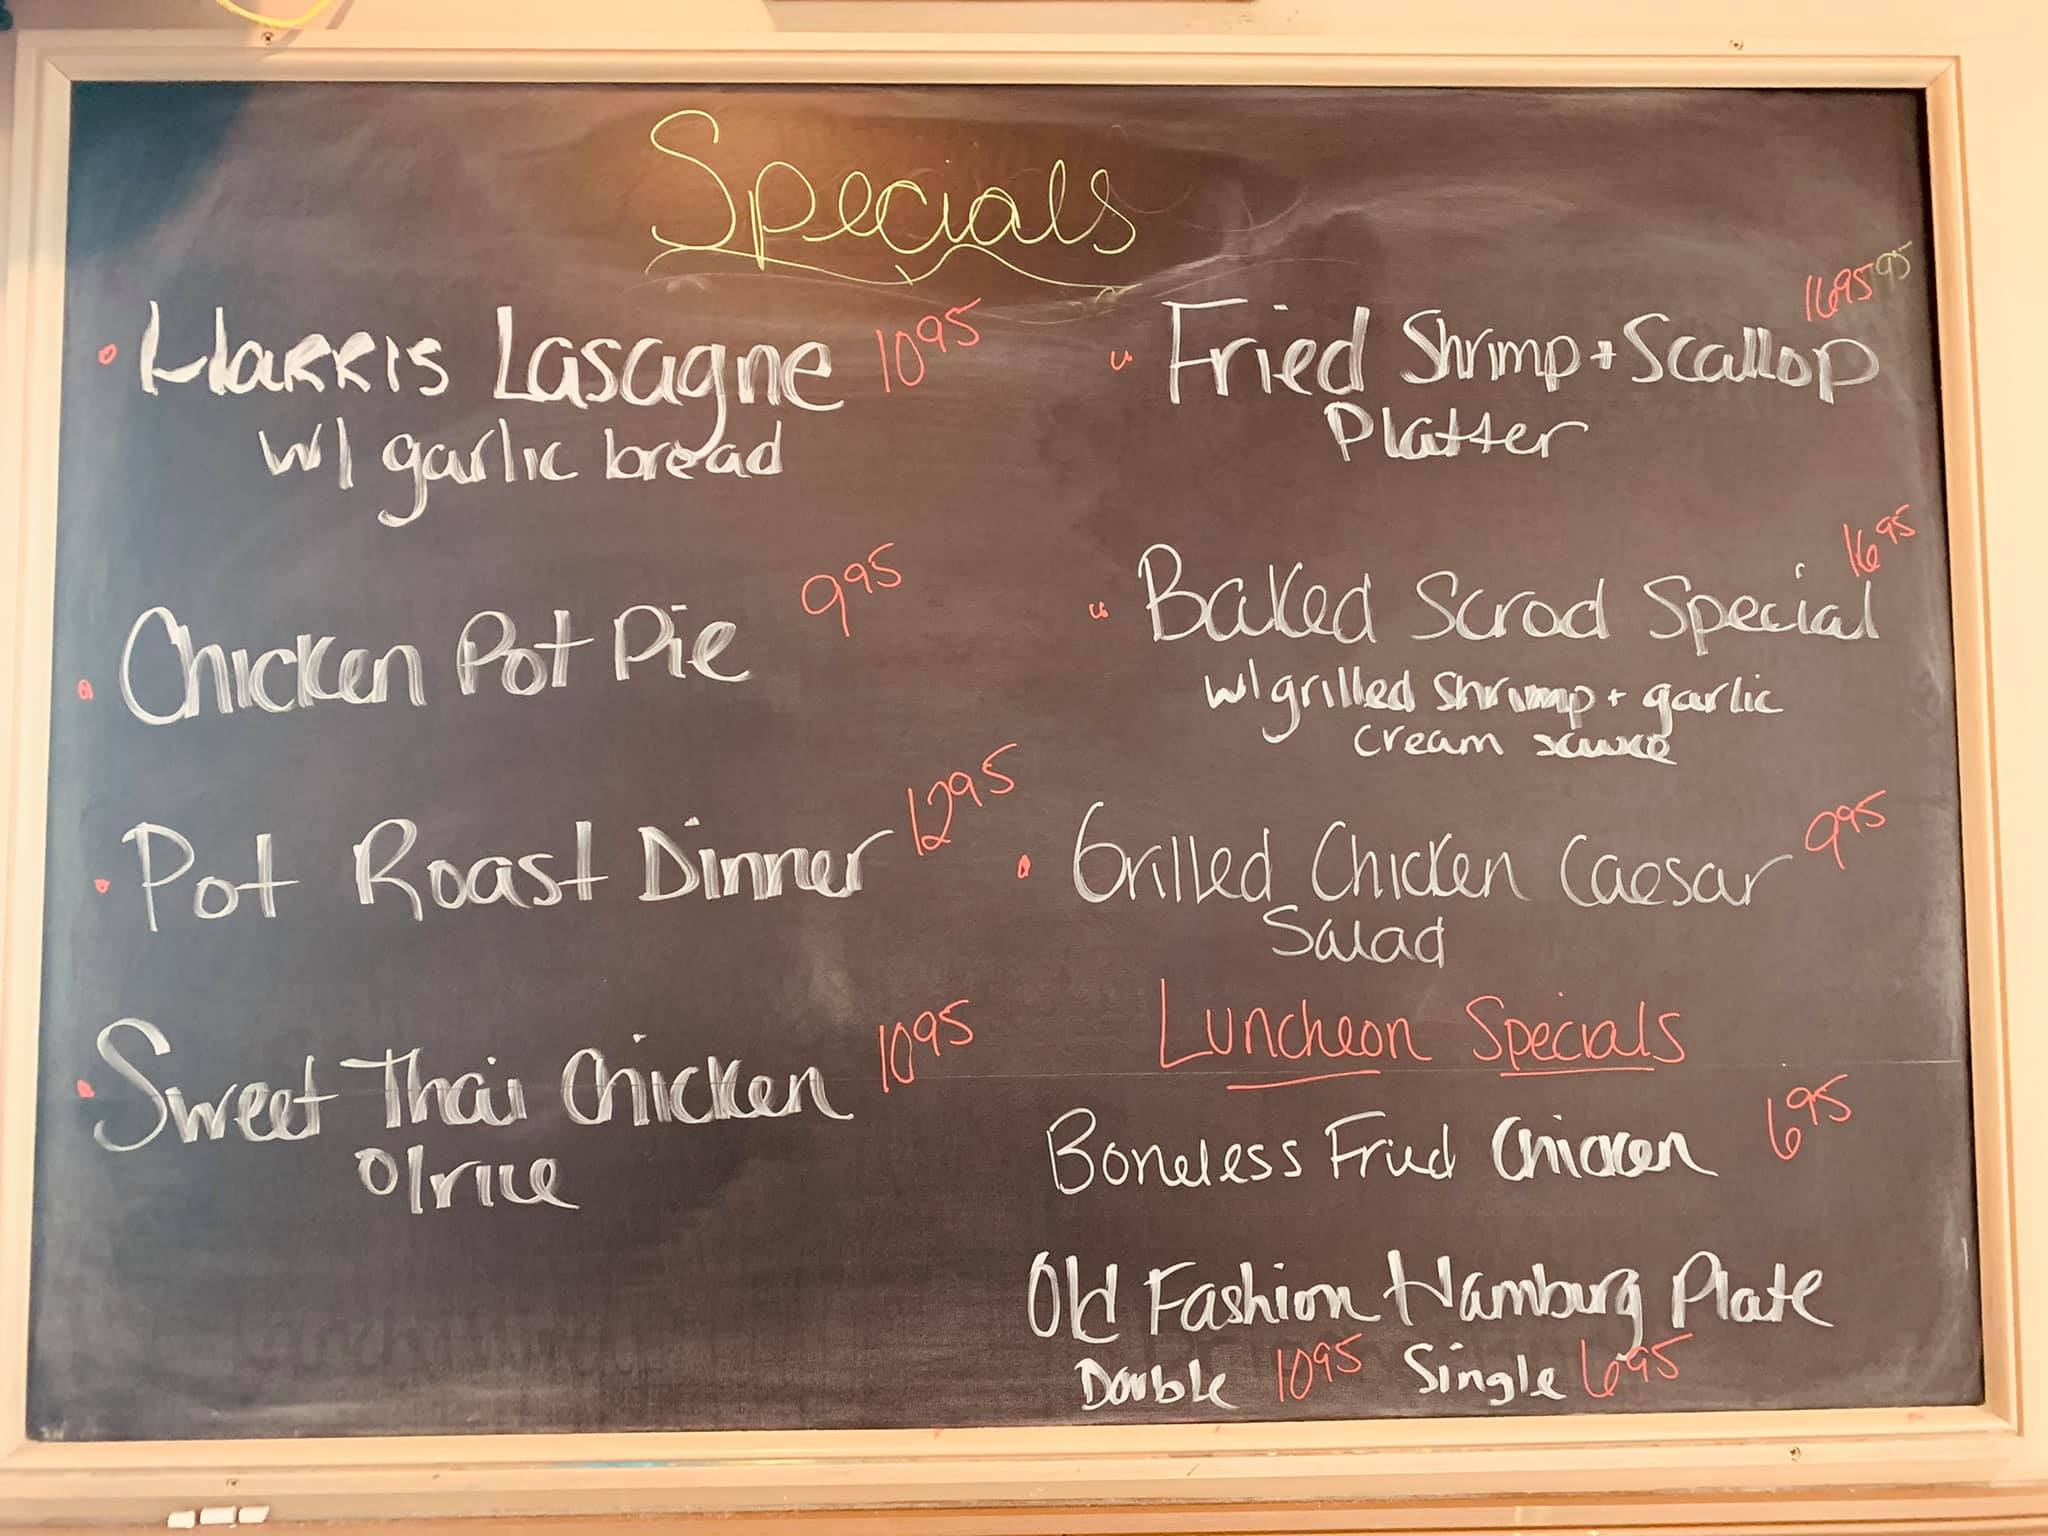 Specials
Harris Lasagne 10 95
w/ garlic bread
Chicken Pot Pie 9 95
Pot Roast Dinner 12 95
Sweet Thai Chicken 10 95
o/rice
Fried Shrimp + Scallop 16 95 95
Platter
Baked Scrod Special 16 95
w/ grilled shrimp + garlic
cream sauce
Grilled Chicken Caesar 9 95
Salad
Luncheon Specials
Boneless Fried Chicken 6 95
Old Fashion Hamburg Plate
Double 10 95 Single 6 95